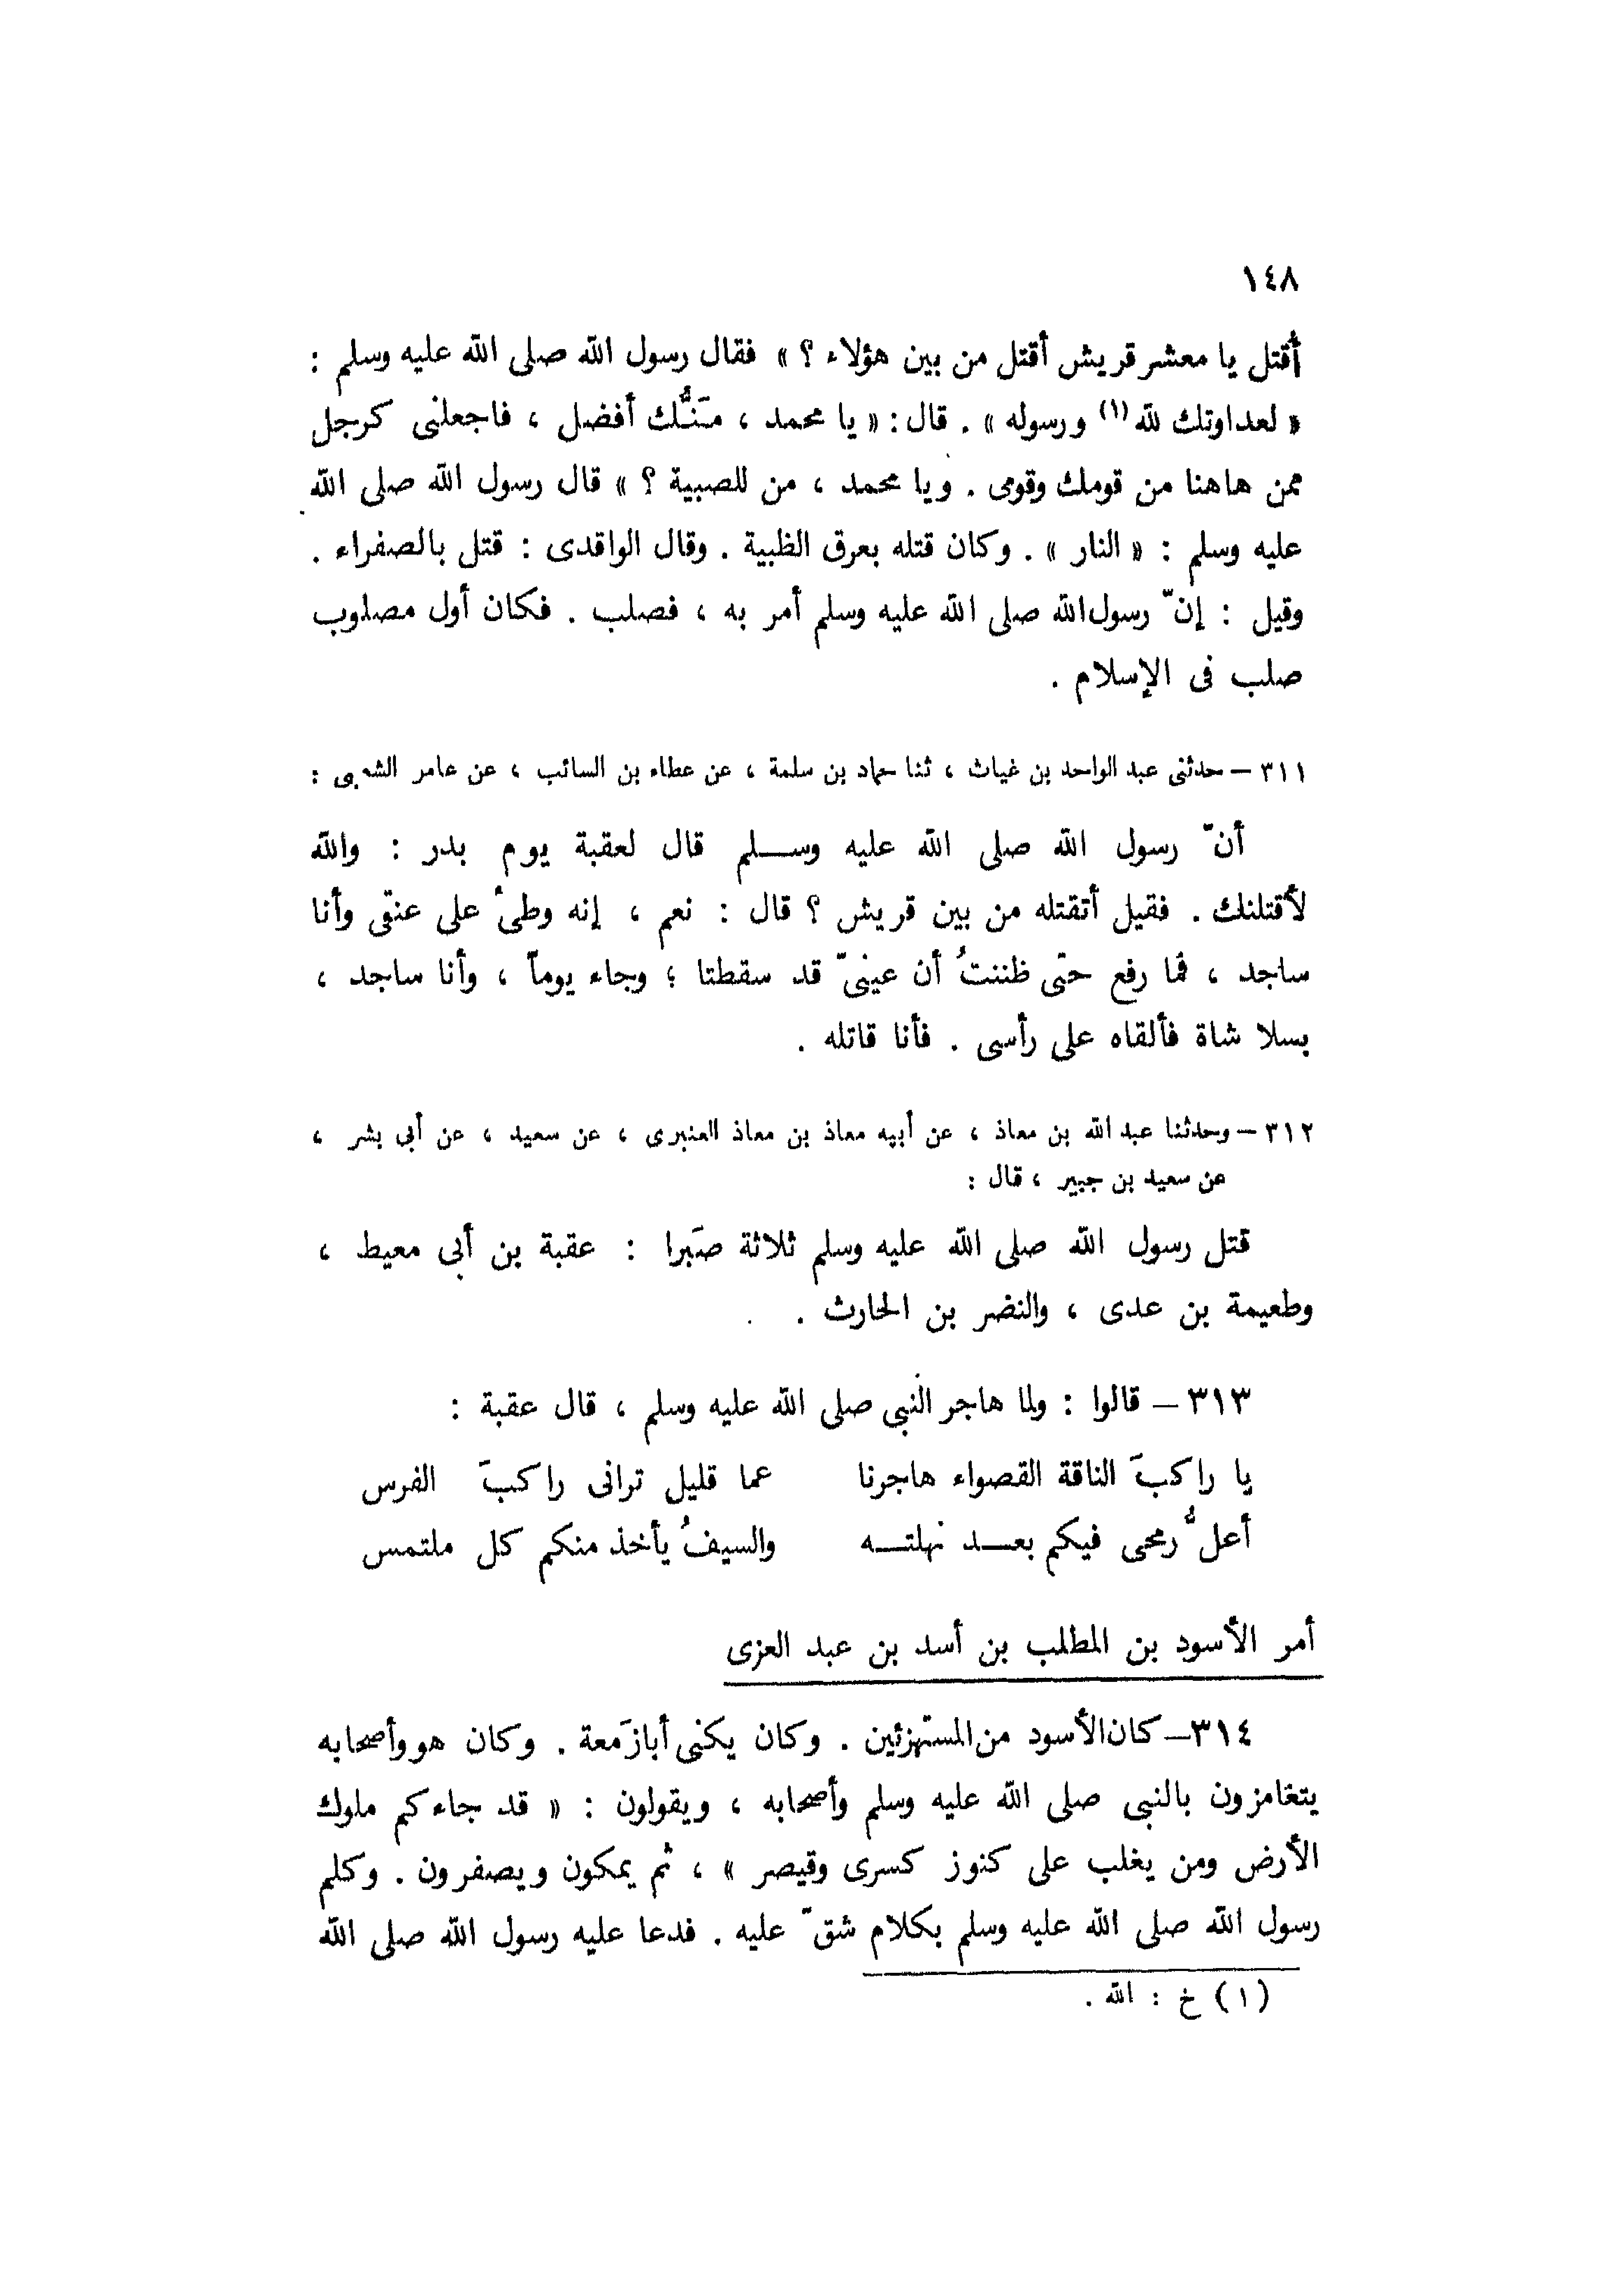 ١٤٨
أُقتل يا معشر قريش أقتل من بين هؤلاء ؟ » فقال رسول الله صلى الله عليه وسلم :
« لعداوتك لله (١) ورسوله » . قال : « يا محمد ، مَنُّك أفضل ، فاجعلنى كرجل
ممن هاهنا من قومك وقومى . ويا محمد ، من للصبية ؟ » قال رسول الله صلى الله
عليه وسلم : « النار » . وكان قتله بعرق الظبية . وقال الواقدى : قتل بالصفراء .
وقيل : إنّ رسول الله صلى الله عليه وسلم أمر به ، فصلب . فكان أول مصلوب
صلب فى الإسلام .
٣١١ – حدثنى عبد الواحد بن غياث ، ثنا حماد بن سلمة ، عن عطاء بن السائب ، عن عامر الشعبى :
أنّ رسول الله صلى الله عليه وســلم قال لعقبة يوم بدر : والله
لأقتلنك . فقيل أتقتله من بين قريش ؟ قال : نعم ، إنه وطئ على عنقى وأنا
ساجد ، فما رفع حتى ظننتُ أن عينىّ قد سقطتا ؛ وجاء يوماً ، وأنا ساجد ،
بسلا شاة فألقاه على رأسى . فأنا قاتله .
٣١٢ – وحدثنا عبد الله بن معاذ ، عن أبيه معاذ بن معاذ العنبرى ، عن سعيد ، عن أبى بشر ،
عن سعيد بن جبير ، قال :
قتل رسول الله صلى الله عليه وسلم ثلاثة صَبرا : عقبة بن أبى معيط ،
وطعيمة بن عدى ، والنضر بن الحارث .
٣١٣ – قالوا : ولما هاجر النبى صلى الله عليه وسلم ، قال عقبة :
يا راكبَ الناقة القصواء هاجرنا عما قليل ترانى راكبَ الفرس
أعلُّ رمحى فيكم بعــد نهلتــه والسيفُ يأخذ منكم كل ملتمس
أمر الأسود بن المطلب بن أسد بن عبد العزى
٣١٤ – كان الأسود من المستهزئين . وكان يكنى أبا زَمعة . وكان هو وأصحابه
يتغامزون بالنبى صلى الله عليه وسلم وأصحابه ، ويقولون : « قد جاءكم ملوك
الأرض ومن يغلب على كنوز كسرى وقيصر » ، ثم يمكون ويصفرون . وكلم
رسول الله صلى الله عليه وسلم بكلام شقّ عليه . فدعا عليه رسول الله صلى الله
(١) خ : الله .